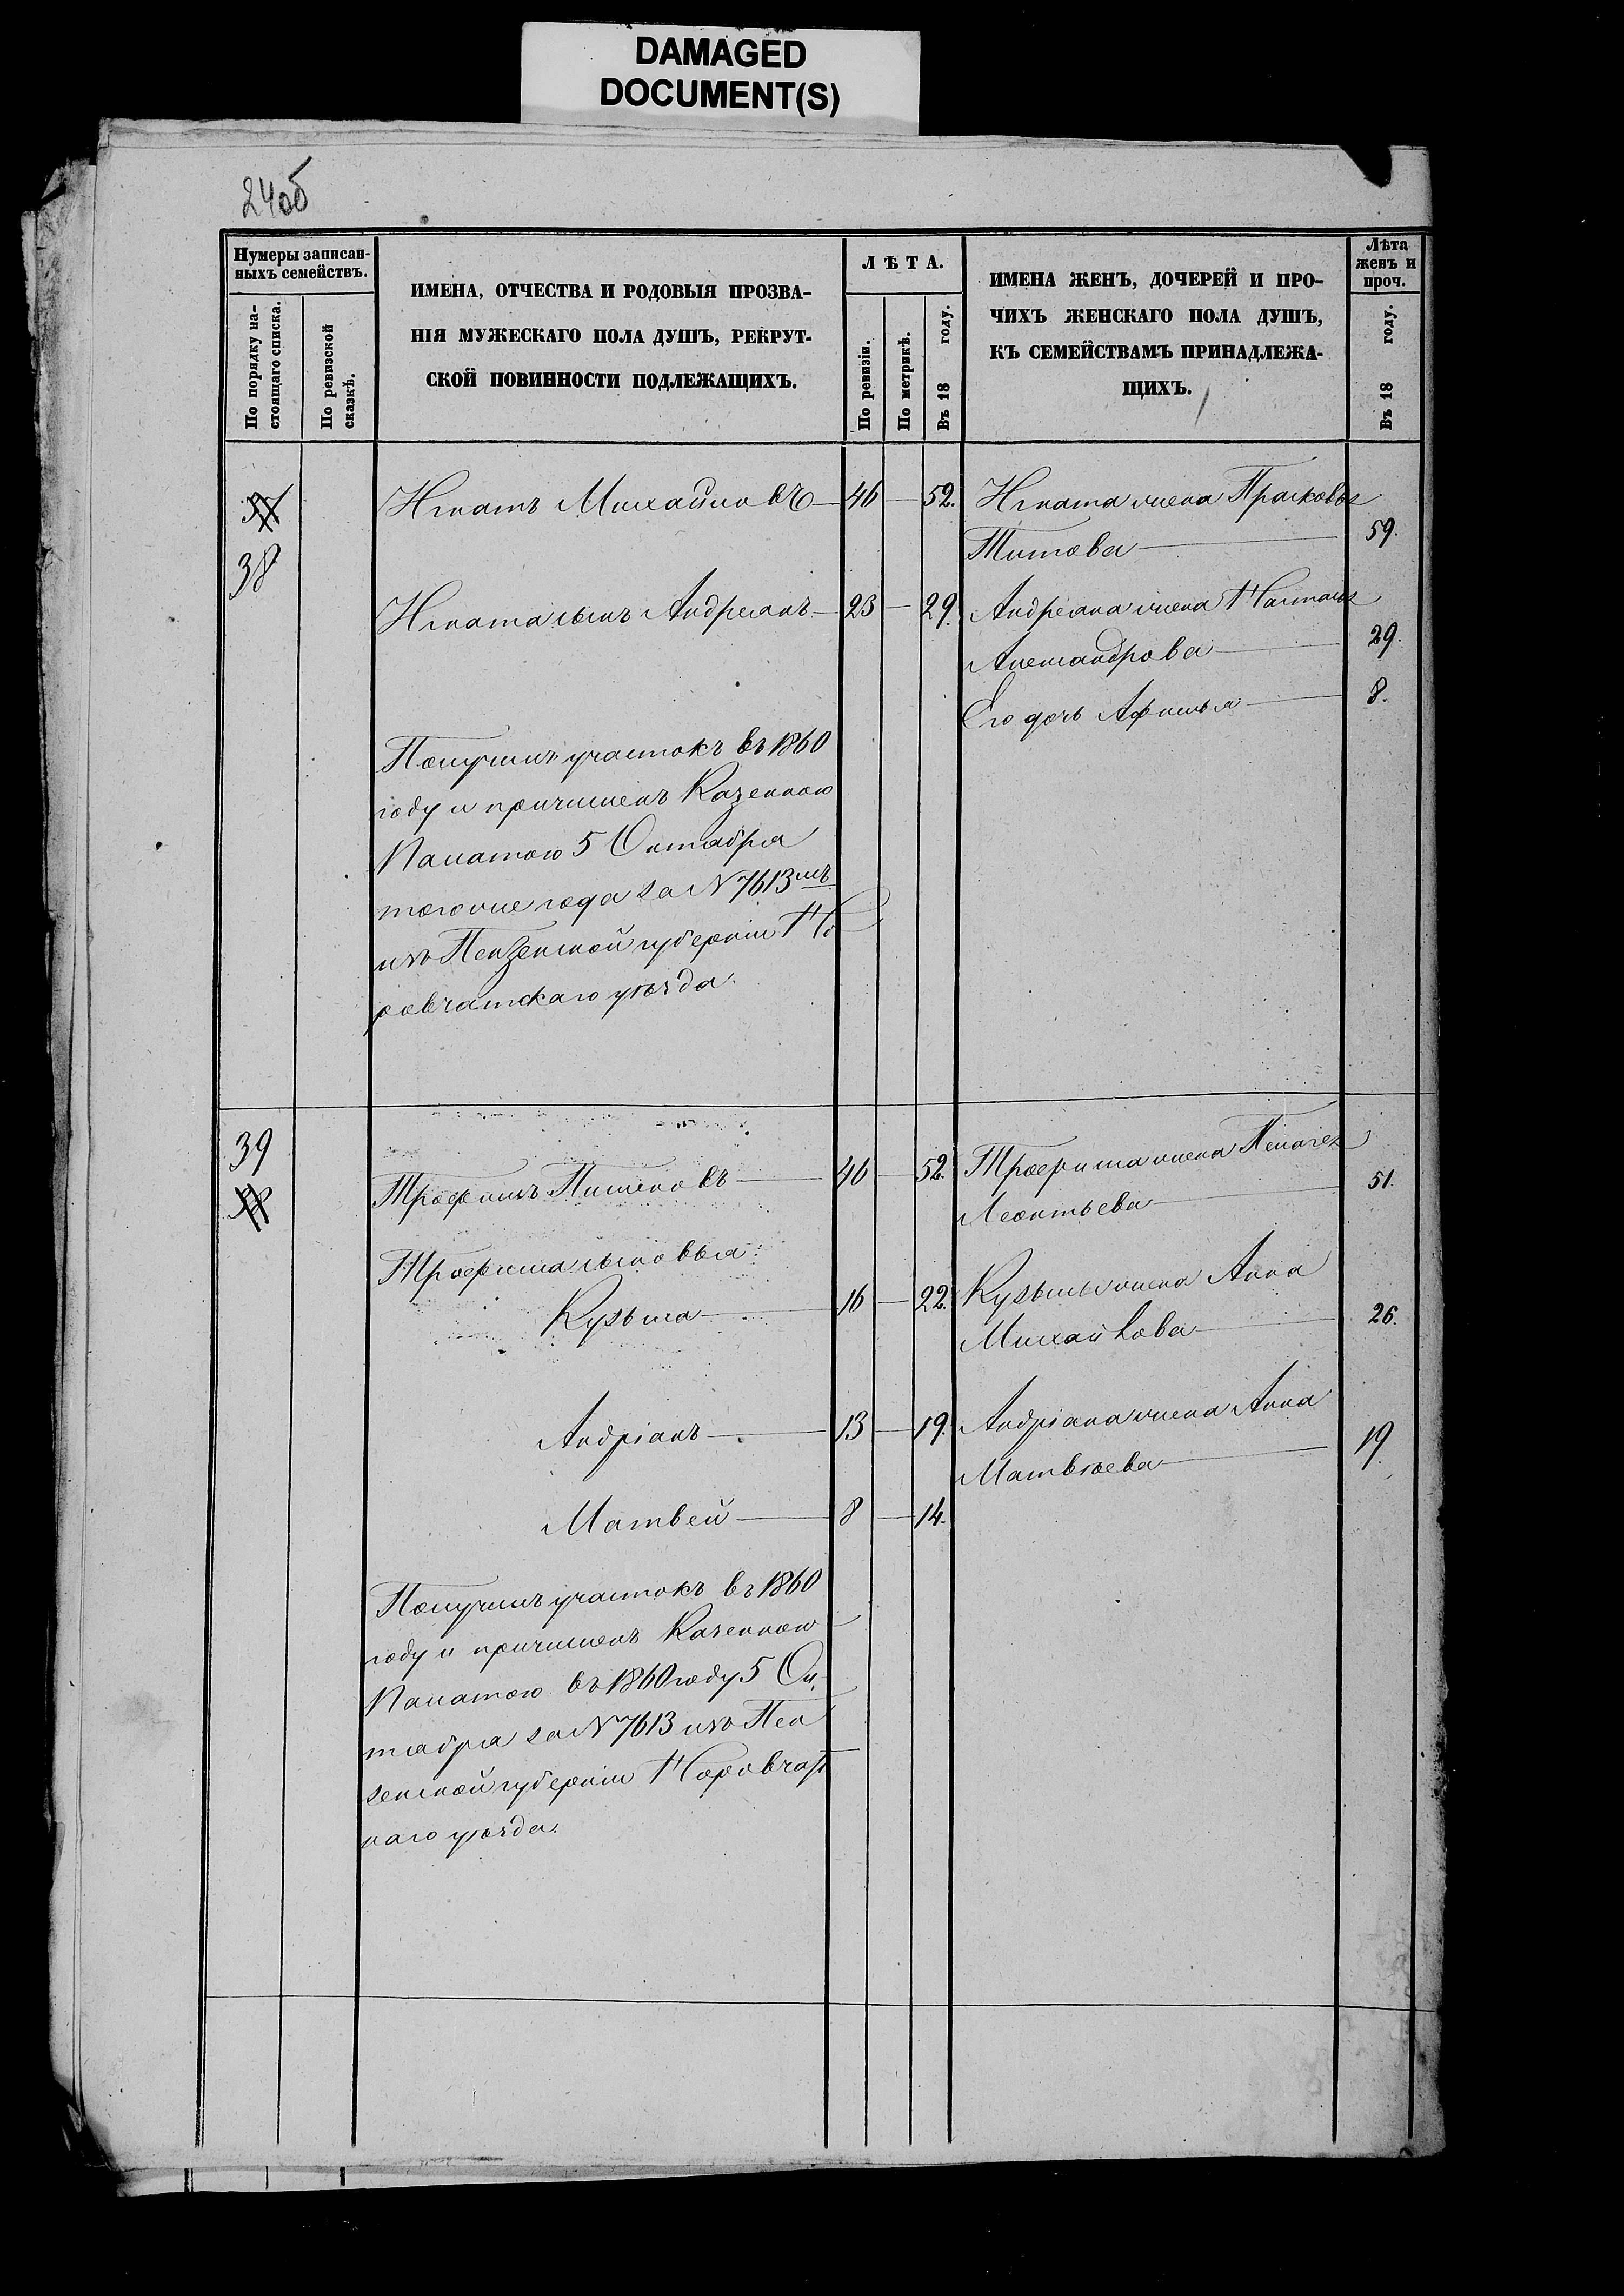 DAMAGED
DOCUMENT(S)
24об
Нумеры записан-
ныхъ семействъ.
По порядку на-
стоящаго списка.
По ревизской
сказкѣ.
ИМЕНА, ОТЧЕСТВА И РОДОВЫЯ ПРОЗВА-
НІЯ МУЖЕСКАГО ПОЛА ДУШЪ, РЕКРУТ-
СКОЙ ПОВИННОСТИ ПОДЛЕЖАЩИХЪ.
ЛѢТА.
По ревизіи.
По метрикѣ.
Въ 18 году.
ИМЕНА ЖЕНЪ, ДОЧЕРЕЙ И ПРО-
ЧИХЪ ЖЕНСКАГО ПОЛА ДУШЪ,
КЪ СЕМЕЙСТВАМЪ ПРИНАДЛЕЖА-
ЩИХЪ.
Лѣта
женъ и
проч.
Въ 18 году.
38
Игнатъ Михайловъ 46 52.
Игната жена Прасковья
Титова 59.
Игната сынъ Андреянъ 23 29.
Андреяна жена Наталья
Александрова 29.
Его дочь Афимья 8.
Получилъ участокъ въ 1860
году и причисленъ Казенною
Палатою 5 Октября
того же года за № 7613мъ
изъ Пензенской губерніи На
ровчатскаго уѣзда.
39
Трофимъ Пименовъ 46 52.
Трофима жена Пелагея
Леонтьева 51.
Трофима сыновья:
Кузьма 16 22.
Кузьмы жена Анна
Михайлова 26.
Андріанъ 13 19.
Андріана жена Анна
Матвѣева 19.
Матвей 8 14.
Получилъ участокъ въ 1860
году и причисленъ Казенною
Палатою въ 1860 году 5 Ок-
тября за № 7613 изъ Пен
зенской губерніи Наровчат
скаго уѣзда.